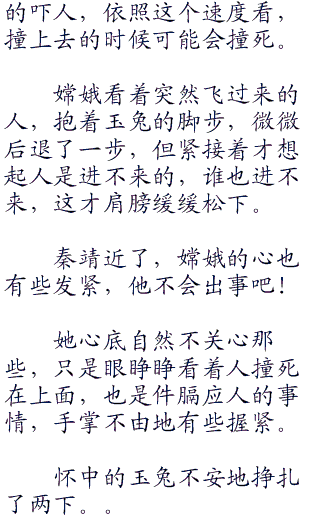 的吓人，依照这个速度看，
撞上去的时候可能会撞死。
嫦娥看着突然飞过来的
人，抱着玉兔的脚步，微微
后退了一步，但紧接着才想
起人是进不来的，谁也进不
来，这才肩膀缓缓松下。
秦靖近了，嫦娥的心也
有些发紧，他不会出事吧！
她心底自然不关心那
些，只是眼睁睁看着人撞死
在上面，也是件膈应人的事
情，手掌不由地有些握紧。
怀中的玉兔不安地挣扎
了两下。。